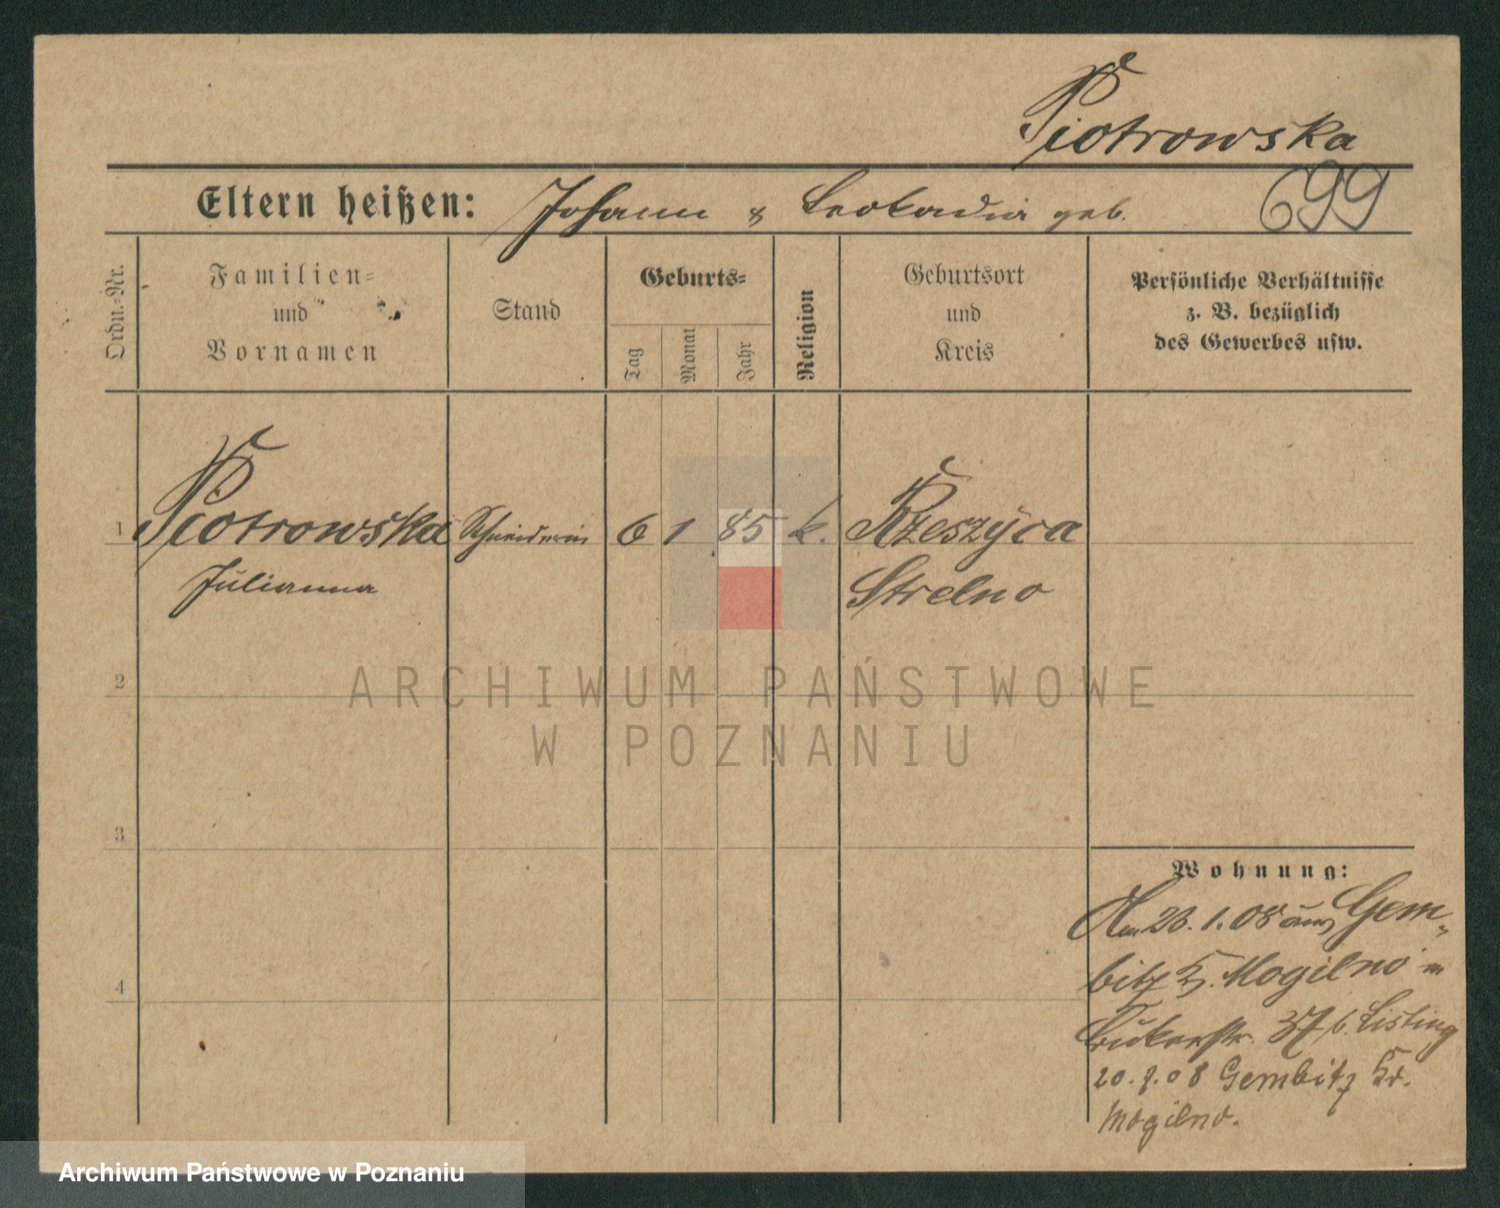 Piotrowska
699
Eltern heißen: Johann & Leokadia geb.
Ordn.-Nr.
Familien- und Vornamen
Stand
Geburts-
Tag
Monat
Jahr
Religion
Geburtsort und Kreis
Persönliche Verhältnisse
z. B. bezüglich
des Gewerbes usw.
1 Piotrowska Schneiderin 6 1 85 k. Rzeszyca
Julianna Strelno
2
3
4
Wohnung:
1.08 aus Gem-
bitz Kr. Mogilno
37 b. Listing
20.9.08 Gembitz Kr.
Mogilno.
ARCHIWUM PAŃSTWOWE
W POZNANIU
Archiwum Państwowe w Poznaniu